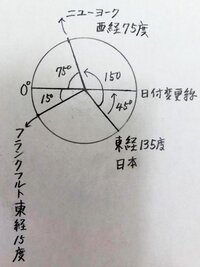 ニューヨーク
西経75度
75°
150
0°
日付変更線
15°
45°
東経135度
日本
フランクフルト東経15度